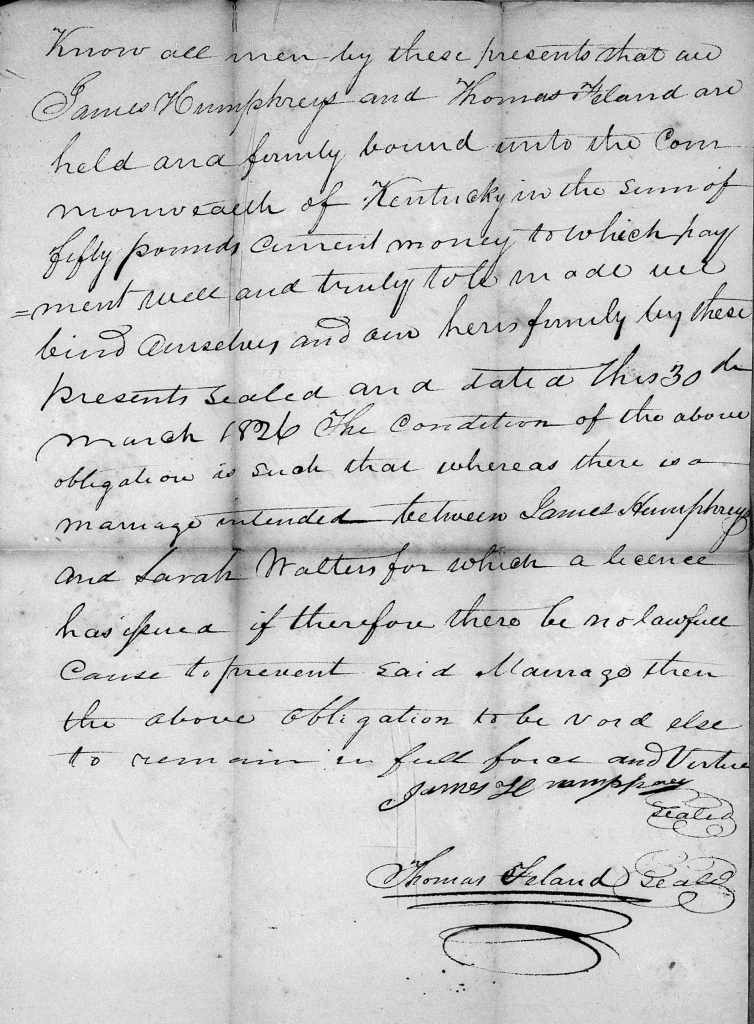 Know all men by these presents that we
James Humphreys and Thomas Feland are
held and firmly bound unto the Com
monwealth of Kentucky in the sum of
fifty pounds current money to which pay
=ment well and truly to be made we
bind ourselves and our heirs firmly by these
presents sealed and dated this 30th
March 1826 The Condition of the above
obligation is such that whereas there is a
marriage intended between James Humphreys
and Sarah Walters for which a licence
has issued if therefore there be no lawfull
Cause to prevent said Marriage then
the above obligation to be void else
to remain in full force and Virtue
James Humphrey
Seald
Thomas Feland Seald